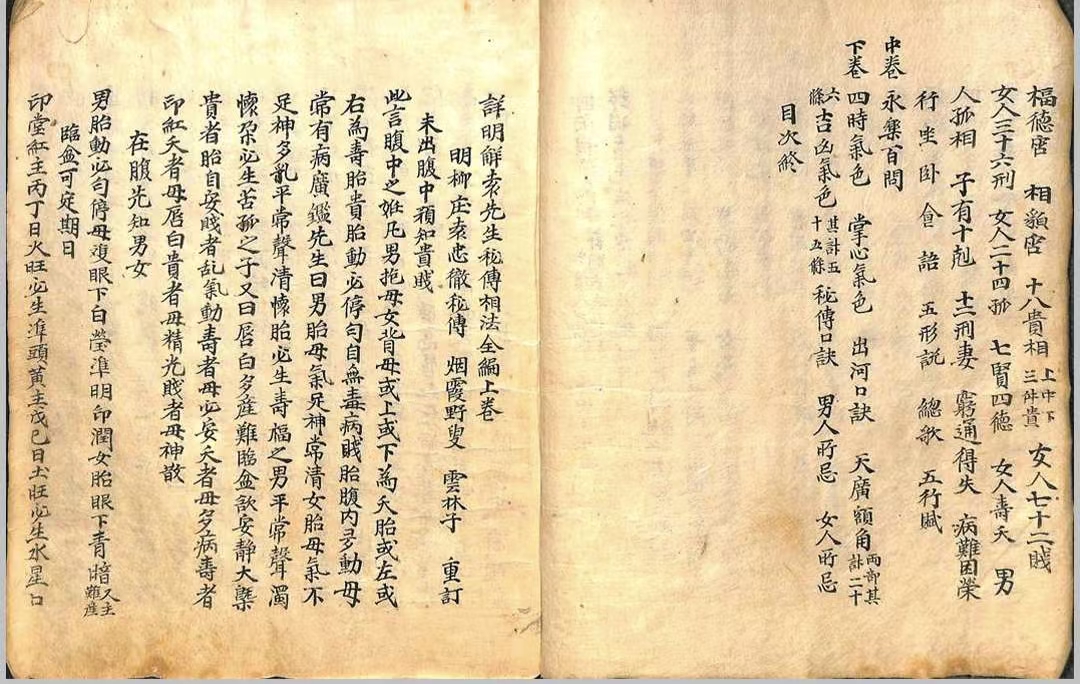 福德宮 相貌宮 十八貴相 上中下三件貴 女人七十二賤
女人三十六刑 女人二十四孤 七賢四德 女人壽夭 男
人孤相 子有十剋 十二刑妻 窮通得失 病難困榮
行坐卧食語 五形說 總歌 五行賦
中卷 永樂百問
下卷 四時氣色 掌心氣色 出河口訣 天廣額角 兩部其計二十
六條 吉凶氣色 其計五十五條 秘傳口訣 男人所忌 女人所忌
目次終
詳明解袁先生秘傳相法全編上卷
明柳庄袁忠徹秘傳 烟霞野叟 雲林子 重訂
未出腹中預知貴賤
此言腹中之姙凡男抱母女背母或上或下為夭胎或左或
右為壽胎貴胎動必停勻自無毒病賤胎腹內多動母
常有病廣鑑先生曰男胎母氣足神常清女胎母氣不
足神多亂平常聲清懷胎必生壽福之男平常聲濁
懷孕必生苦孤之子又曰唇白多產難臨盆歆安靜大槩
貴者胎自安賤者乱氣動壽者母必安夭者母多病壽者
印紅夭者母唇白貴者母精光賤者母神散
在腹先知男女
男胎動必勻停母複眼下白瑩準明印潤女胎眼下青暗又主難產
臨盆可定期日
印堂紅主丙丁日火旺必生準頭黃主戊己日土旺必生水星口